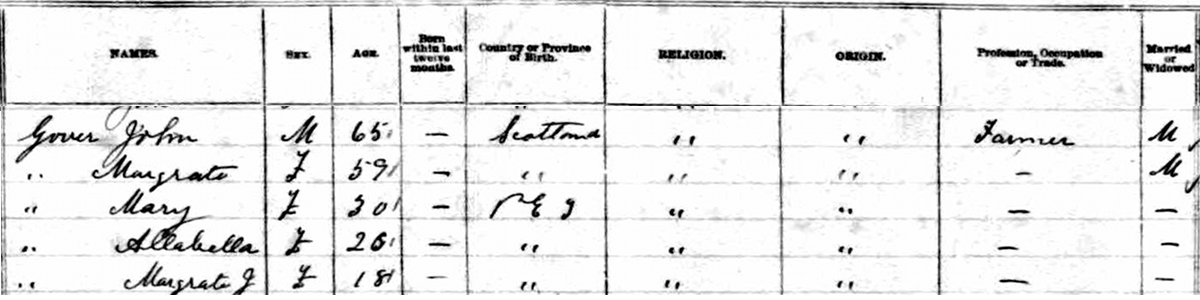 NAMES. SEX. AGE. Born within last twelve months. Country or Province of Birth. RELIGION. ORIGIN. Profession, Occupation or Trade. Married or Widowed
Gover John M 65 — Scotland " " Farmer M
" Margrate F 59 — " " " — M
" Mary F 30 — P E I " " — —
" Allabella F 26 — " " " — —
" Margrate J F 18 — " " " — —